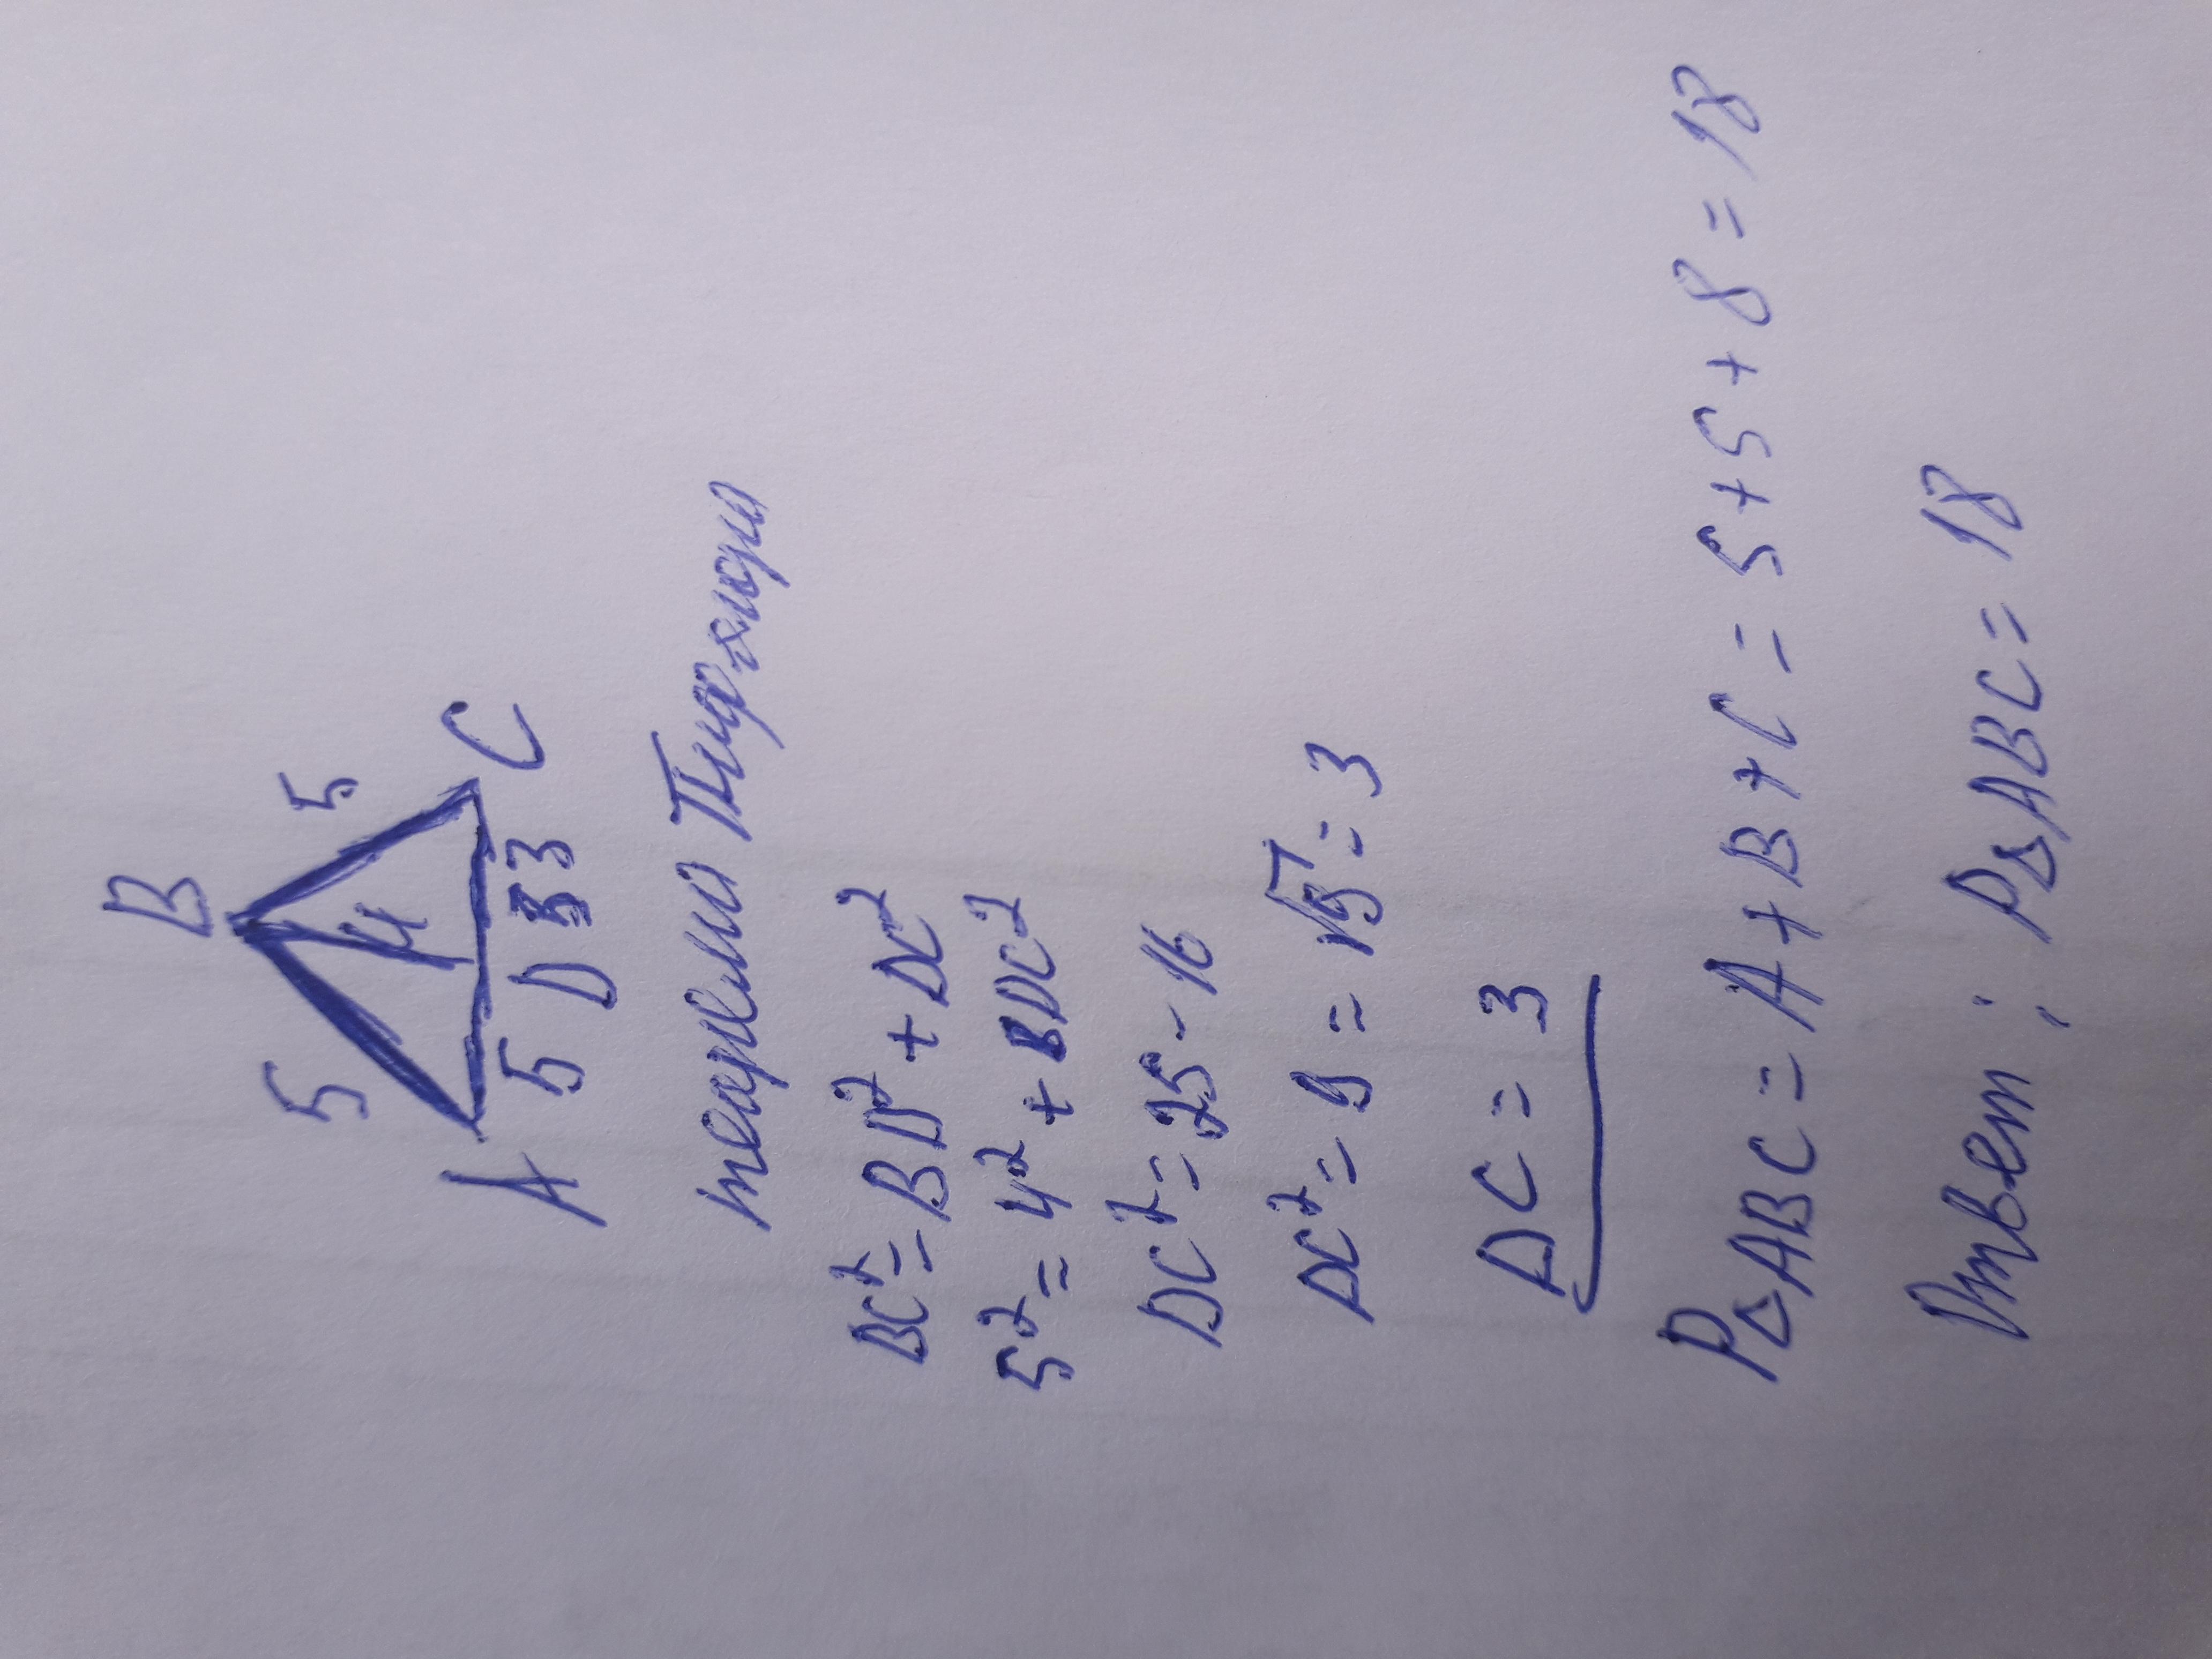 B
5 5
4
A 5 D 3 3 C
теорема Пифагора
BC²= BD² + DC²
5² = 4² + DC²
DC² = 25 - 16
DC² = 9 = √9 = 3
DC = 3
P△ABC = A + B + C = 5 + 5 + 8 = 18
Ответ: P△ABC = 18